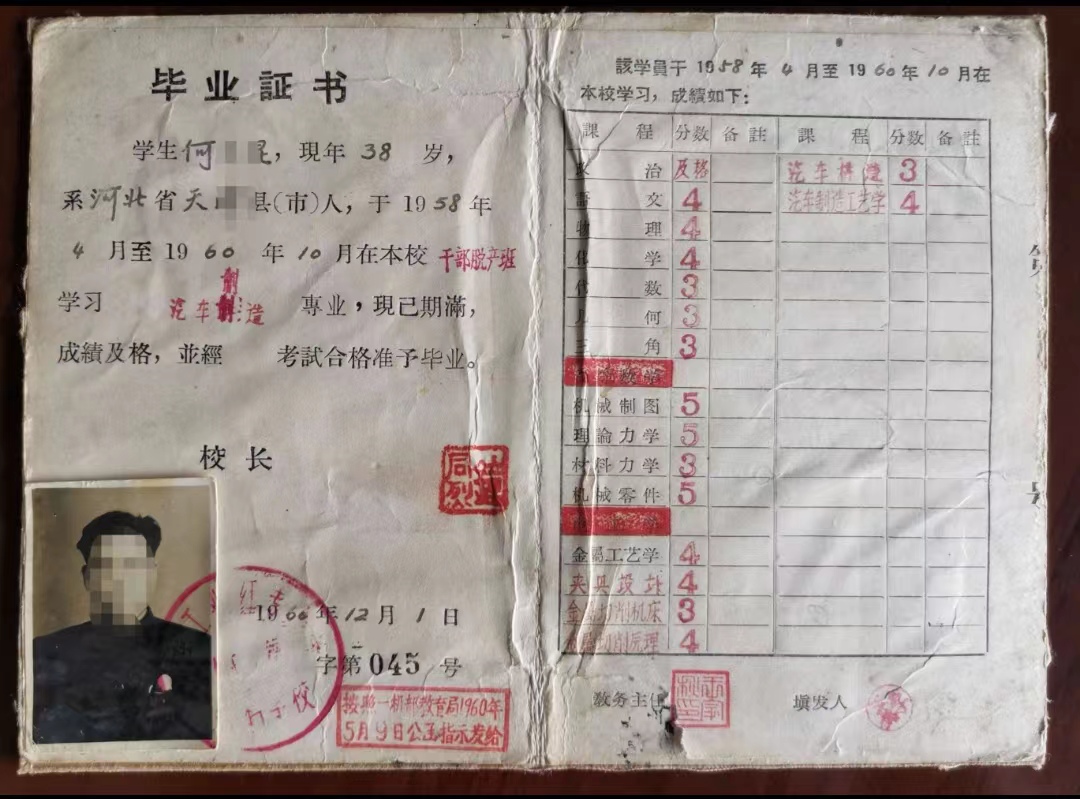 毕业証书
学生何 昆，現年38岁，
系河北省天 县(市)人，于1958年
4月至1960年10月在本校干部脱产班
学习 汽车制造 專业，現已期滿，
成績及格，並經 考試合格准予毕业。
校长
1960年12月1日
字第045号
按照一机部教育局1960年
5月9日公函指示发给
該学員于1958年4月至1960年10月在
本校学习，成績如下：
課程 分数 备註 課程 分数 备註
政治 及格 汽车構造 3
語文 4 汽车制造工艺学 4
物理 4
化学 4
代数 3
几何 3
三角 3
机械制图 5
理論力学 5
材料力学 3
机械零件 5
金屬工艺学 4
夹具设计 4
金属切削机床 3
金属切削原理 4
教务主任 填发人